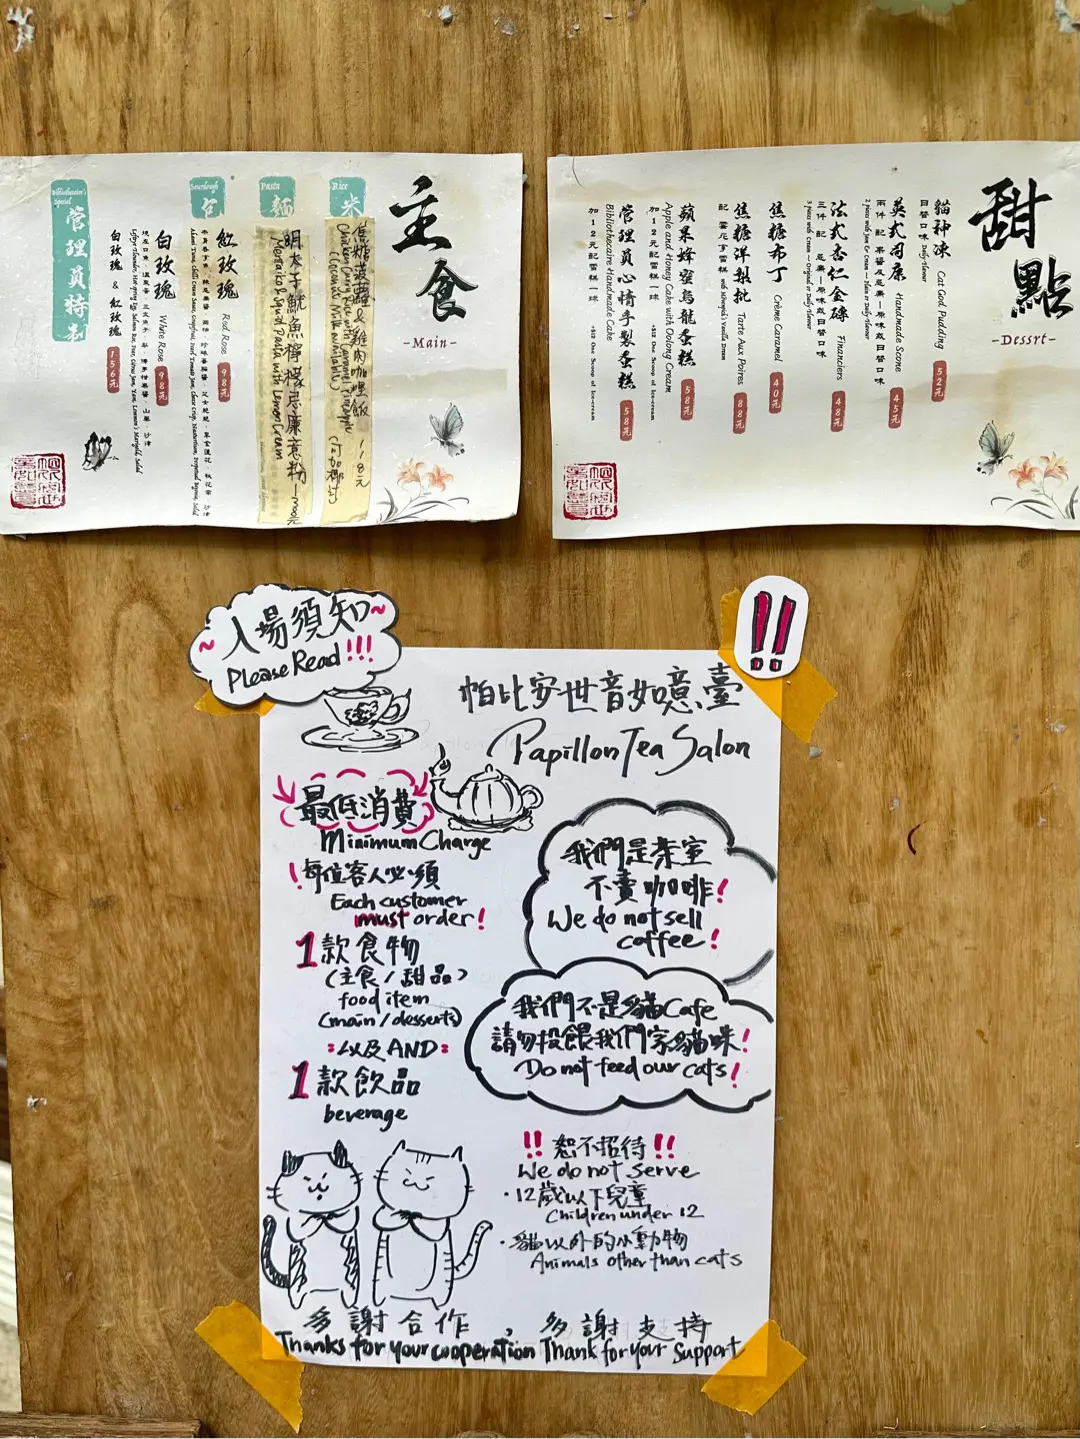 主食
-Main-
Rice
米
焦糖菠蘿&雞肉咖喱飯 118元
Chicken Curry Rice with Caramel Pineapple
(Coconut Milk available)
Pasta
麵
明太子魷魚檸檬忌廉意粉
Mentaiko & Squid Pasta with Lemon Cream
Sourdough
包
紅玫瑰 Red Rose 98元
白玫瑰 White Rose 98元
Bibliothecaire's Special
管理員特制
白玫瑰 & 紅玫瑰 156元
甜點
-Dessrt-
貓神凍 Cat God Pudding 52元
日替口味 Daily Flavour
英式司康 Handmade Scone 45元
法式杏仁金磚 Financiers 48元
焦糖布丁 Crème Caramel 40元
焦糖洋梨批 Tarte Aux Poires 88元
蘋果蜂蜜烏龍蛋糕 58元
Apple and Honey Cake with Oolong Cream
加12元配雪糕一球 +$12 One Scoop of Ice-cream
管理員心情手製蛋糕 58元
Bibliothecaire Handmade Cake
加12元配雪糕一球 +$12 One Scoop of Ice-cream
~入場須知~
Please Read!!!
!!
帕比安世音如意臺
Papillon Tea Salon
最低消費
Minimum Charge
!每位客人必須
Each customer
must order!
1款食物
(主食/甜品)
food item
(main/desserts)
:以及AND:
1款飲品
beverage
我們是茶室
不賣咖啡!
We do not sell
coffee!
我們不是貓Cafe
請勿投餵我們家貓咪!
Do not feed our cats!
!!恕不招待!!
We do not serve
·12歲以下兒童
Children under 12
·貓以外的小動物
Animals other than cats
多謝合作,多謝支持
Thanks for your cooperation Thank for your Support